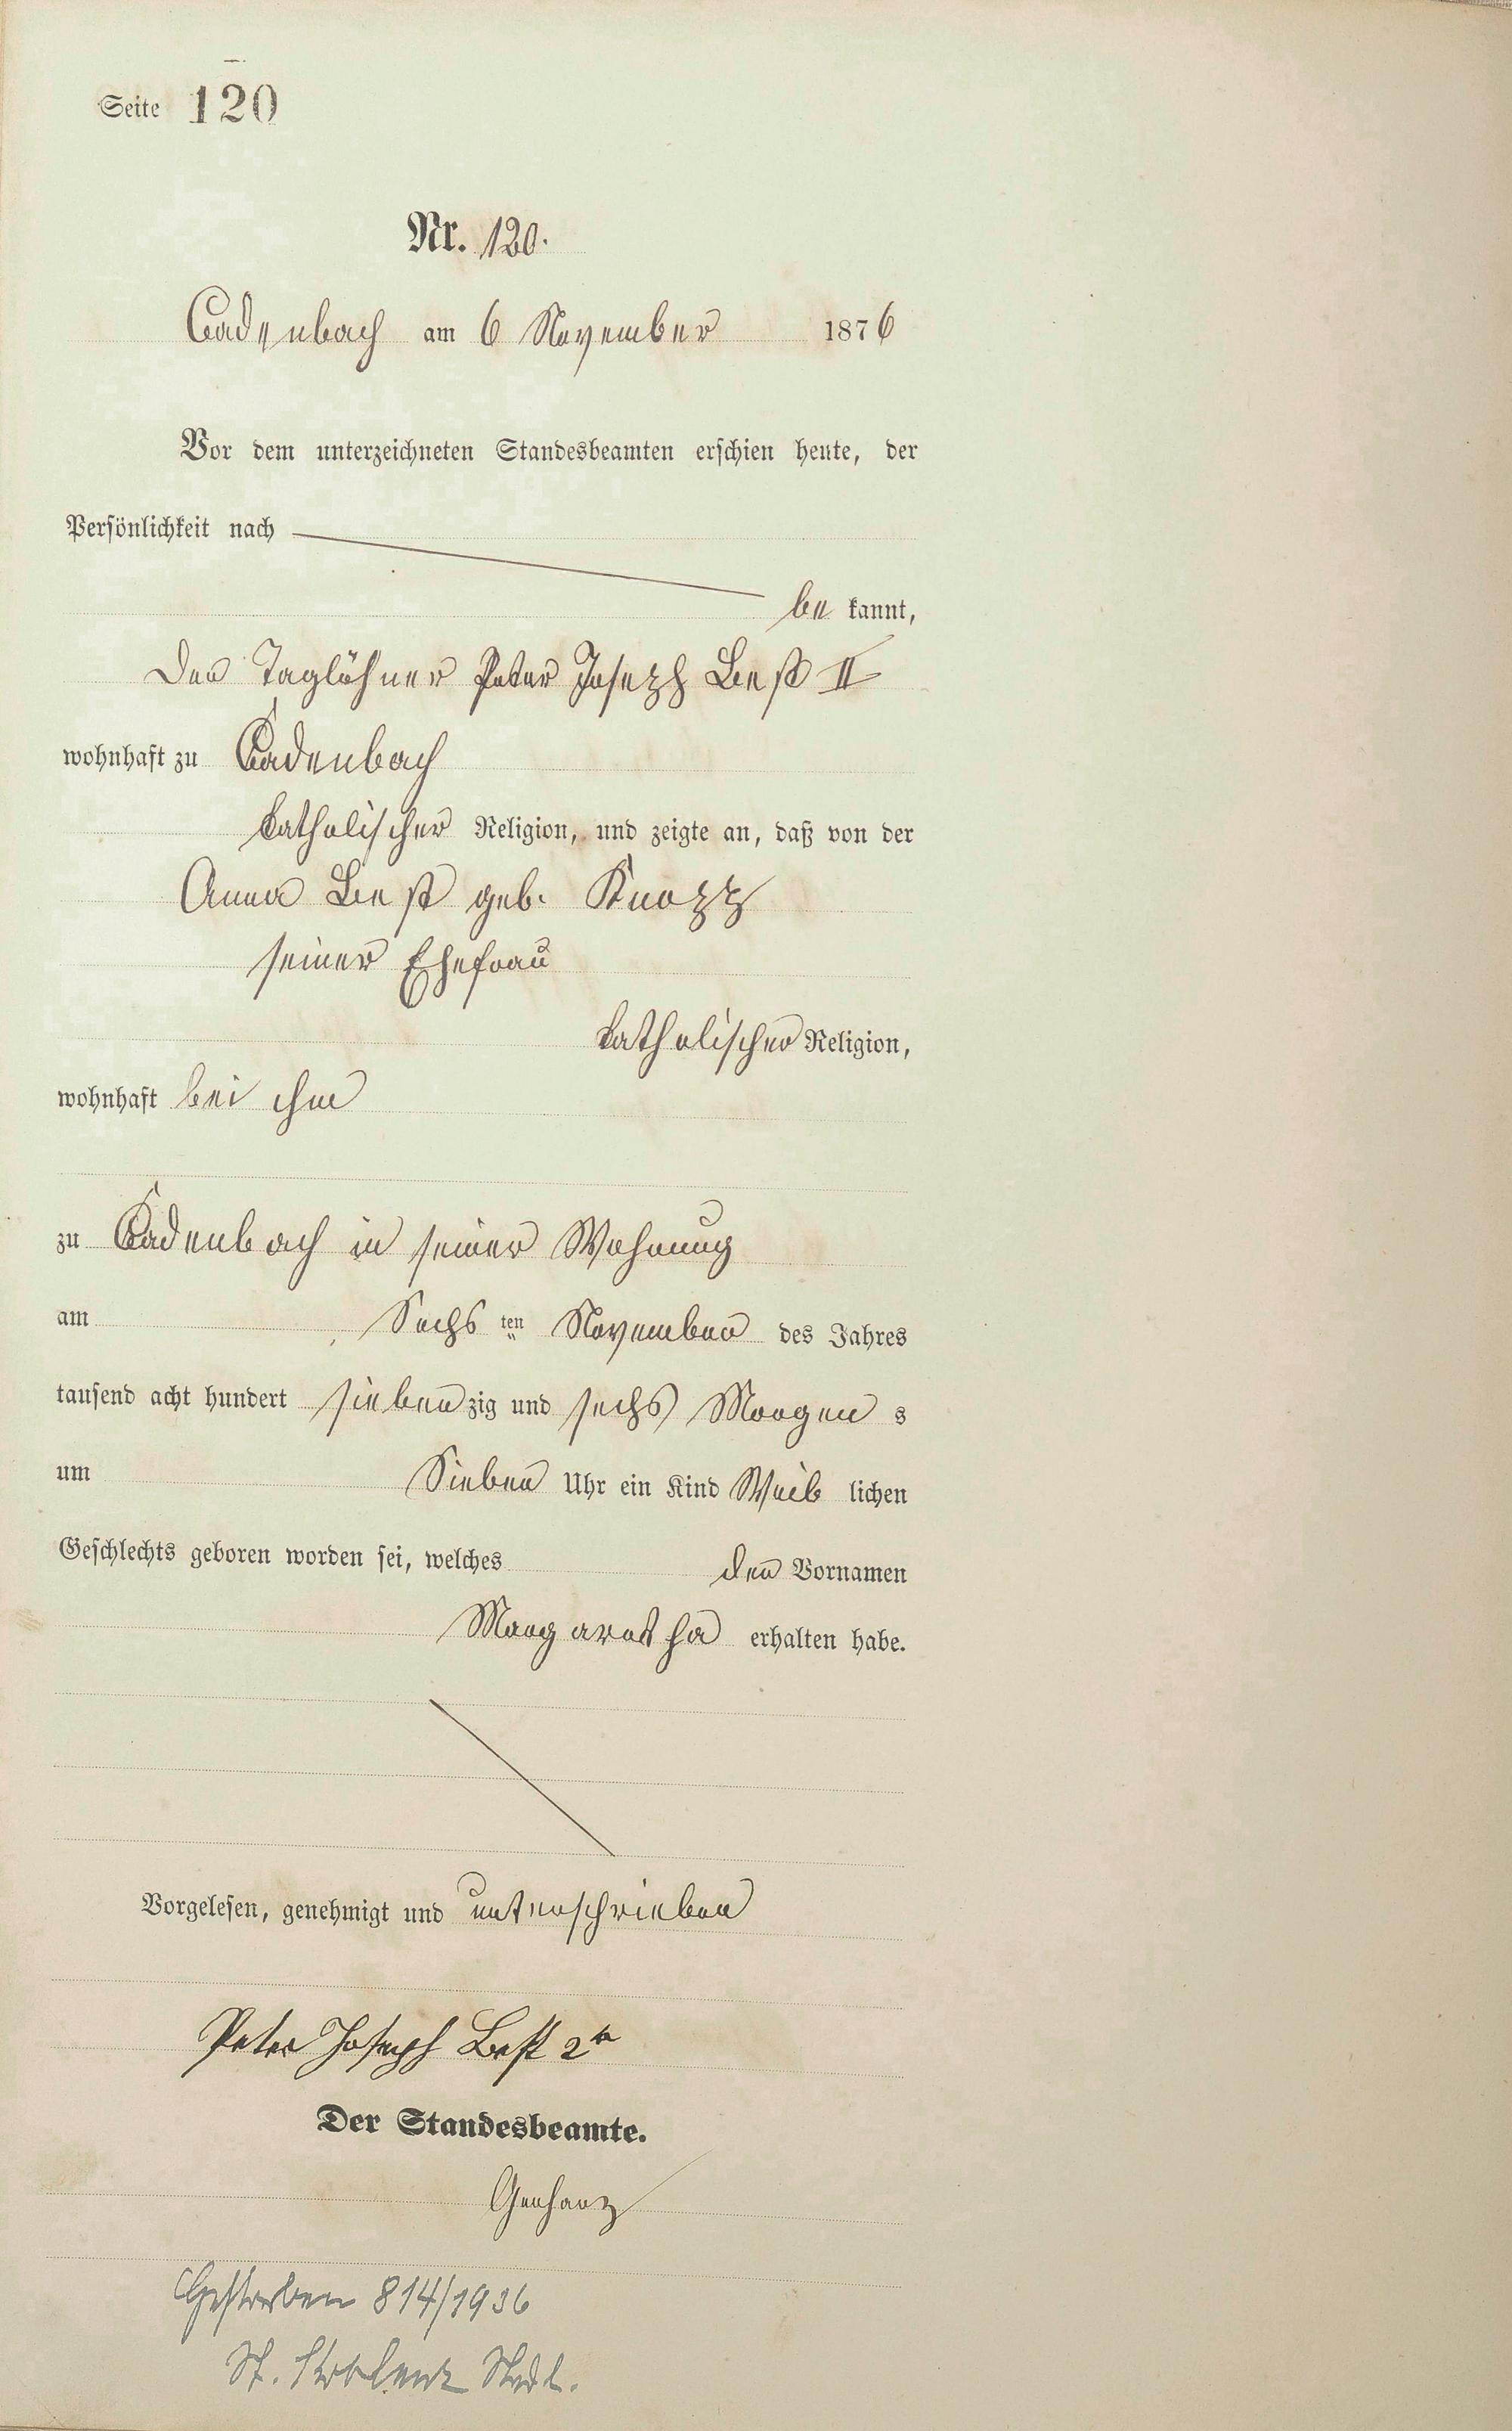 Seite 120
Nr. 120.
Cadenbach am 6 November 1876
Vor dem unterzeichneten Standesbeamten erschien heute, der
Persönlichkeit nach
be kannt,
der Taglöhner Peter Joseph Best II
wohnhaft zu Cadenbach
katholischer Religion, und zeigte an, daß von der
Anna Best geb. Knopp
seiner Ehefrau
katholischer Religion,
wohnhaft bei ihm
zu Cadenbach in seiner Wohnung
am Sechs ten November des Jahres
tausend acht hundert sieben zig und sechs Morgen s
um Sieben Uhr ein Kind Weib lichen
Geschlechts geboren worden sei, welches den Vornamen
Margaretha erhalten habe.
Vorgelesen, genehmigt und unterschrieben
Peter Joseph Best 2te
Der Standesbeamte.
Gerharz
Gestorben 814/1936
St. Koblenz